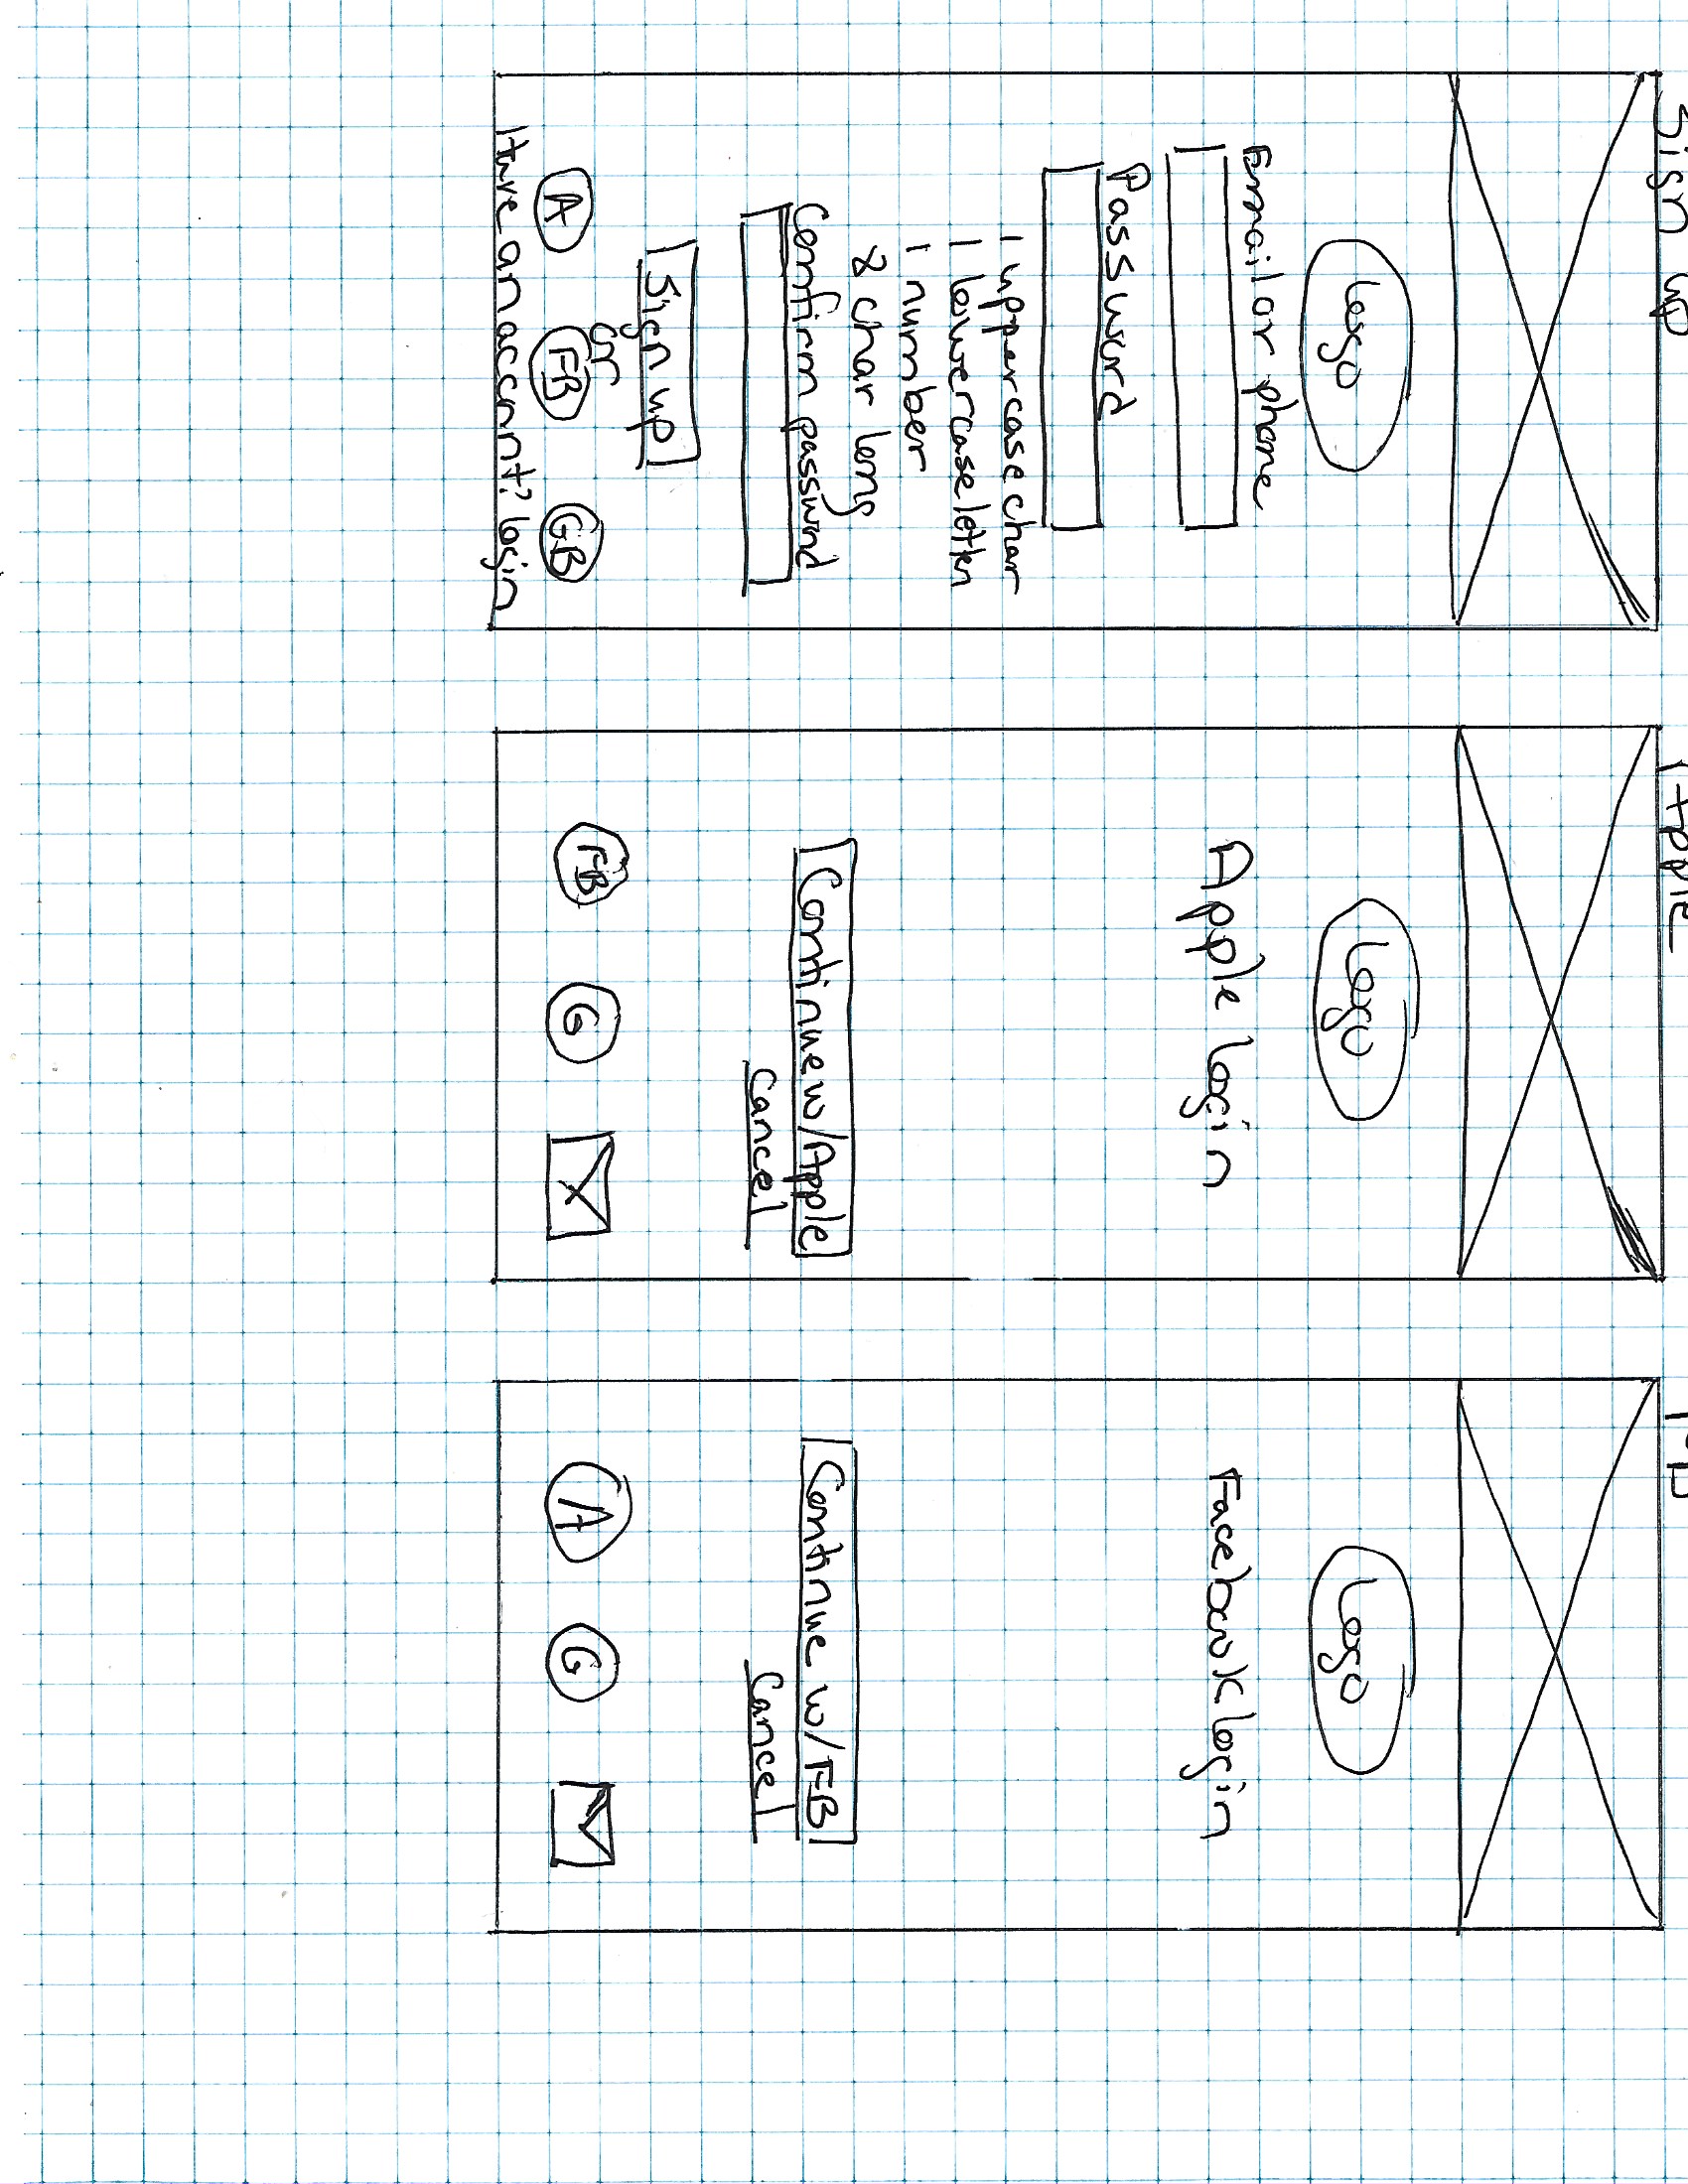 Sign up
Logo
Email or phone
Password
1 uppercase char
1 lowercase letter
1 number
8 char long
Confirm password
Sign up
or
A FB GB
Have an account? login
Apple
Logo
Apple login
Continue w/Apple
Cancel
FB G
FB
Logo
Facebook login
Continue w/FB
Cancel
A G